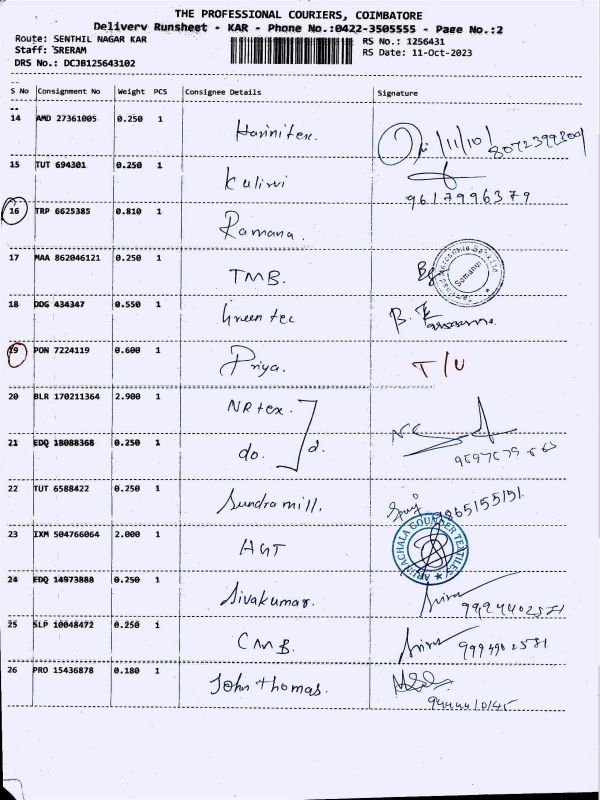 THE PROFESSIONAL COURIERS, COIMBATORE
Delivery Runsheet - KAR - Phone No.:0422-3505555 - Page No.:2
Route: SENTHIL NAGAR KAR RS No.: 1256431
Staff: SRERAM RS Date: 11-Oct-2023
DRS No.: DCJB125643102
S No Consignment No Weight PCS Consignee Details Signature
14 AMD 27361005 0.250 1 11/10/
15 TUT 694301 0.250 1 9617996379
16 TRP 6625385 0.810 1 Ramana
17 MAA 862046121 0.250 1 TMB. Somanur
18 DDG 434347 0.550 1 Green tec B.
19 PON 7224119 0.600 1 Priya. T/U
20 BLR 170211364 2.900 1 NR tex.
21 EDQ 18088368 0.250 1 do.
22 TUT 6588422 0.250 1 Sundra mill. 9865155151
23 IXM 504766064 2.000 1 AGT ARUNACHALA COUNDER TEXTILES
24 EDQ 14973888 0.250 1 Sivakumar.
25 SLP 10048472 0.250 1 CMB.
26 PRO 15436878 0.180 1 John thomas.